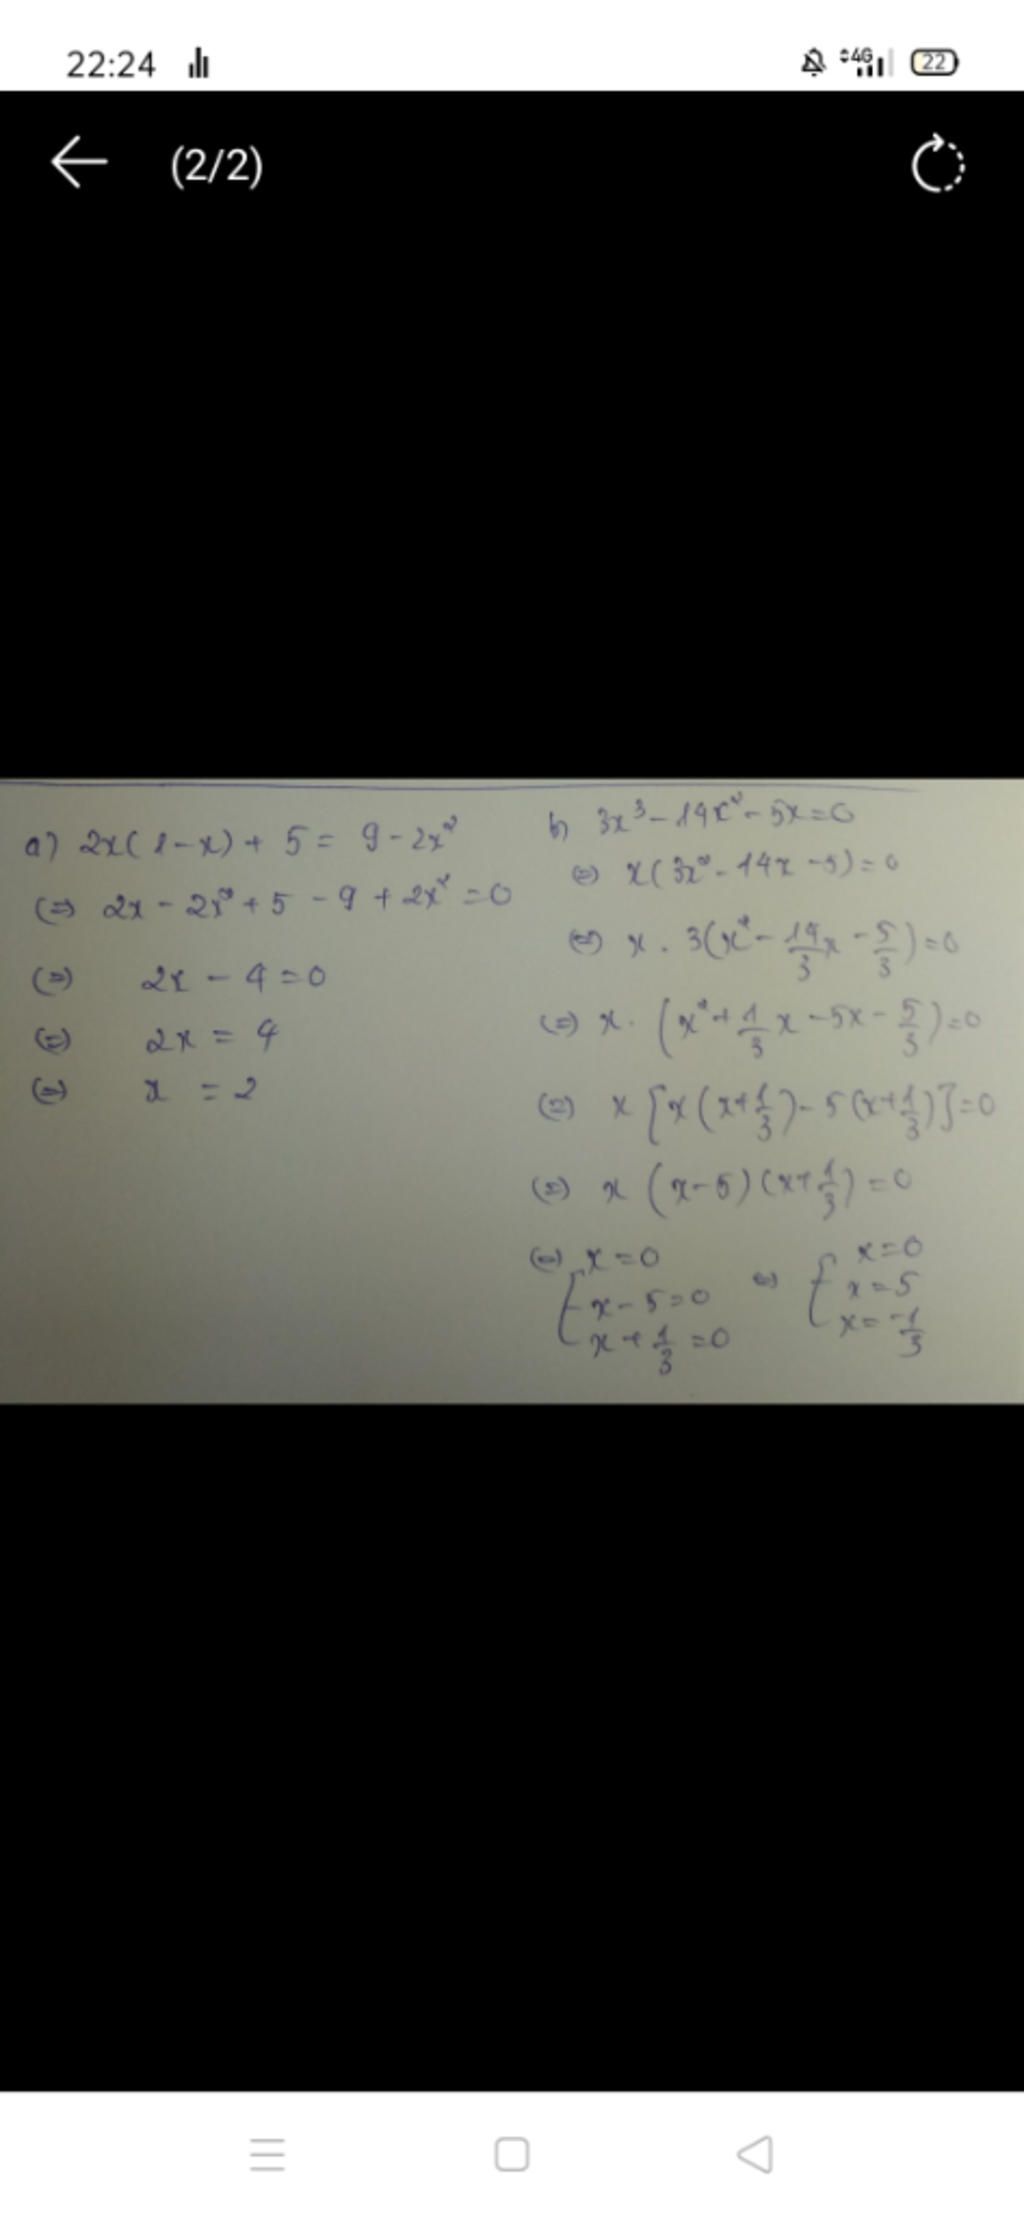 22:24
4G
22
(2/2)
a) 2x(1-x) + 5 = 9 - 2x²
(=) 2x - 2x² + 5 - 9 + 2x² = 0
(=) 2x - 4 = 0
(=) 2x = 4
(=) x = 2
b) 3x³ - 14x² - 5x = 0
(=) x(3x² - 14x - 5) = 0
(=) x . 3(x² - 14/3 x - 5/3) = 0
(=) x . (x² + 1/3 x - 5x - 5/3) = 0
(=) x [x(x + 1/3) - 5(x + 1/3)] = 0
(=) x (x - 5)(x + 1/3) = 0
(=) x = 0 (=) x = 0
x - 5 = 0 x = 5
x + 1/3 = 0 x = -1/3